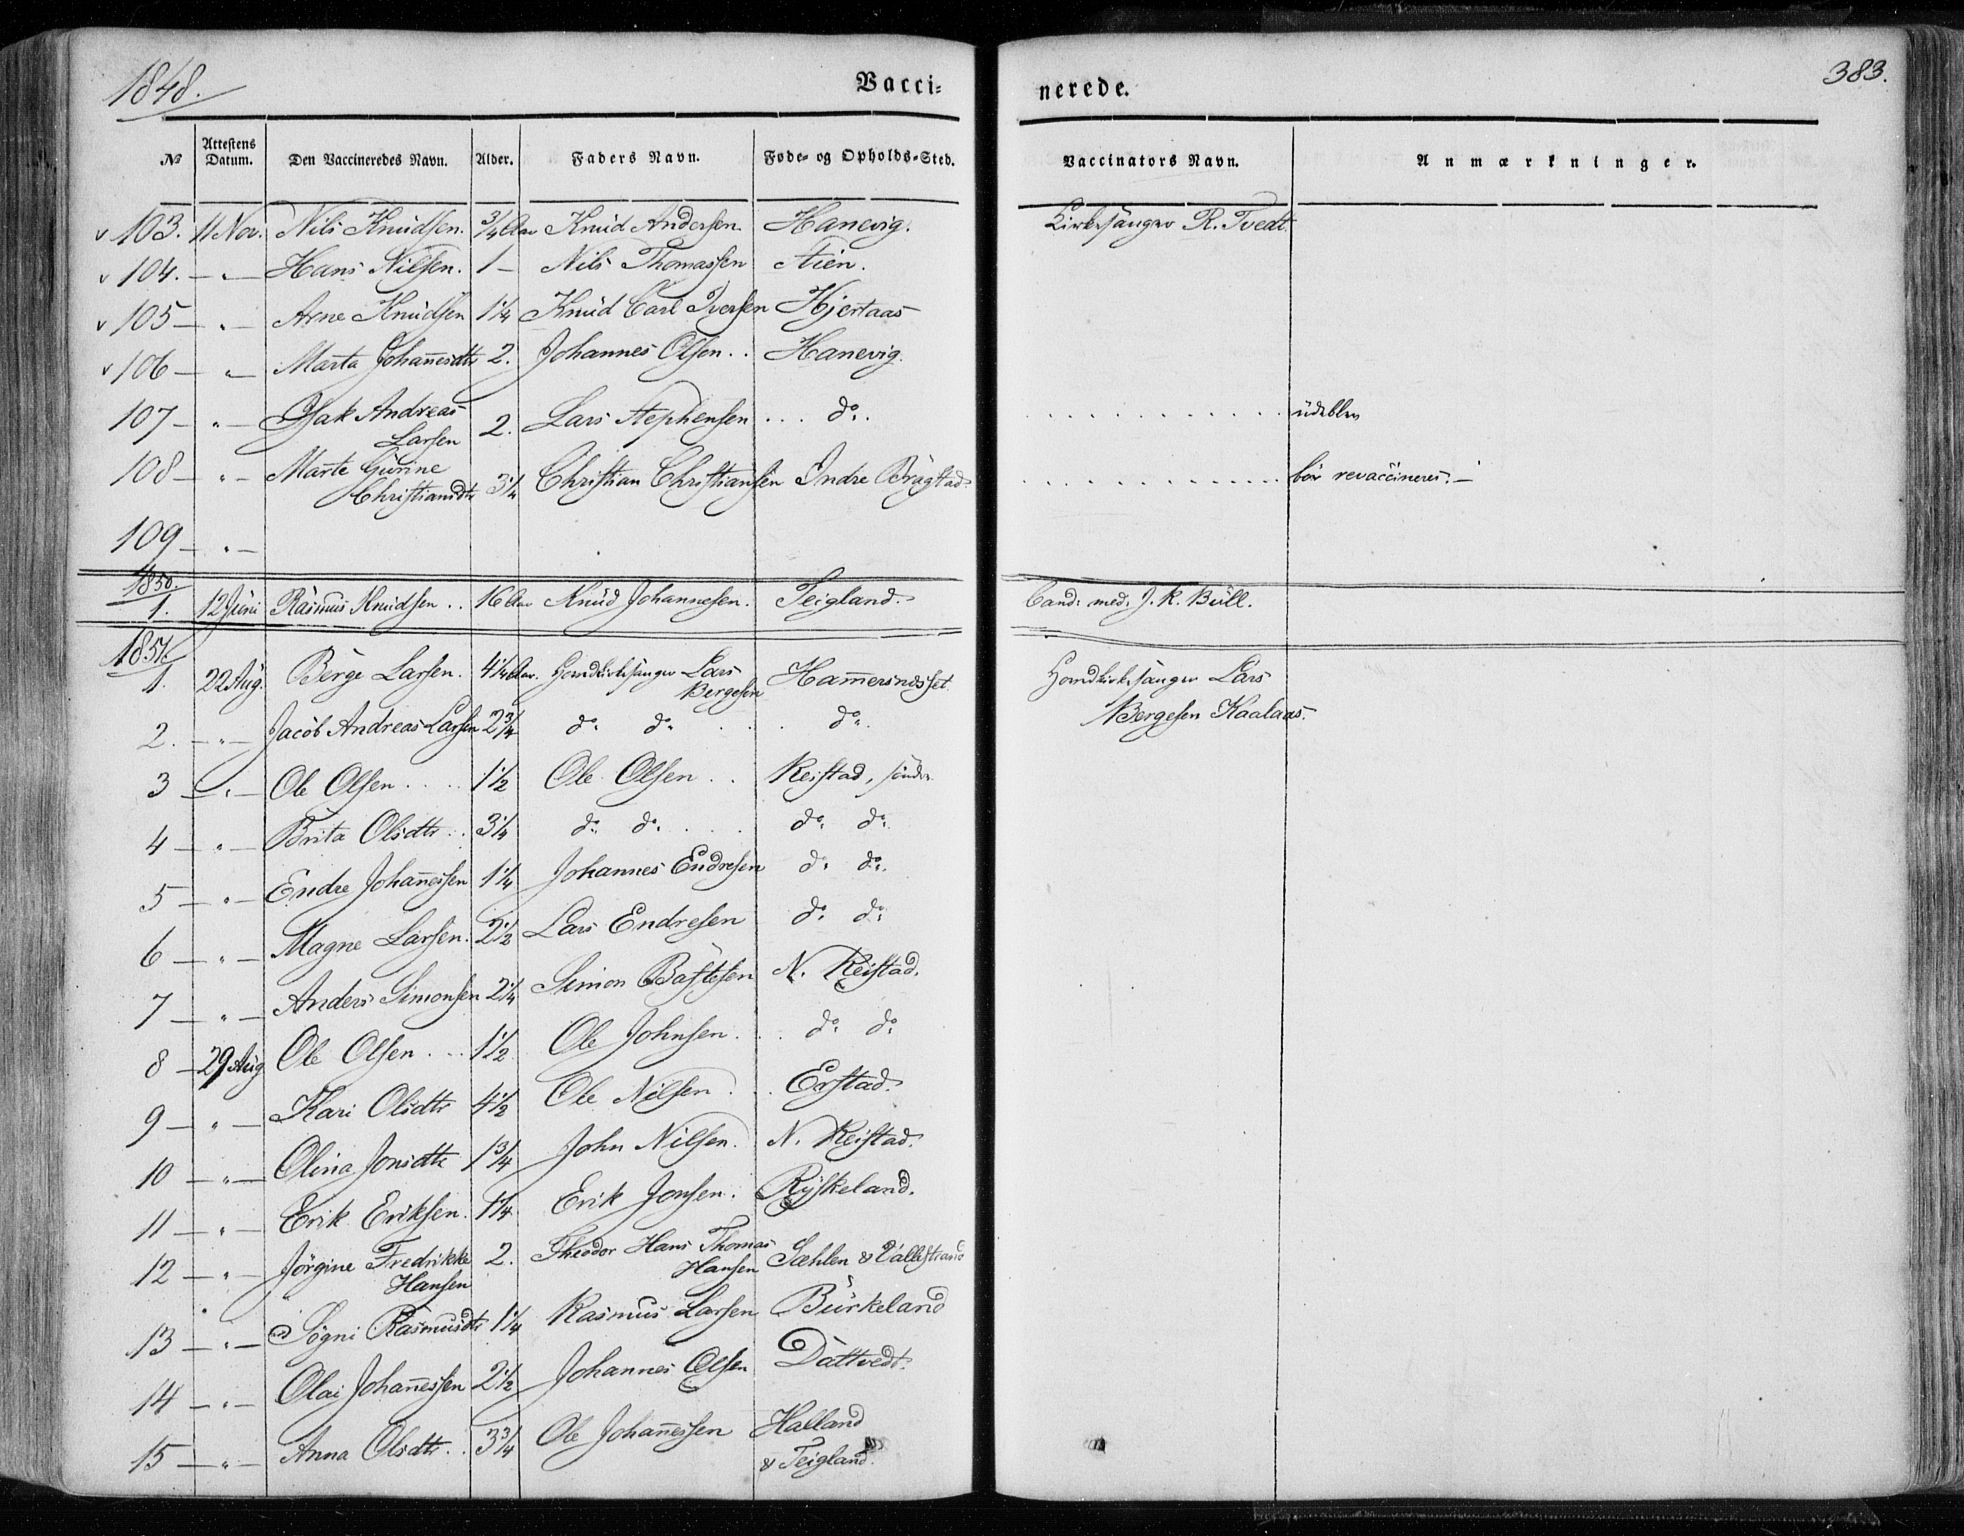 1848.
Vacci-
nerede.
383.
№ Attestens Datum. Den Vaccineredes Navn. Alder. Faders Navn. Føde- og Opholds-Sted. Vaccinators Navn. Anmærkninger.
v 103. 11 Nov. Nils Knudsen. 3/4 Aar Knud Andersen. Hanevig. Kirkesanger R. Tvedt.
v 104. — " — Hans Nilsen. 1 — Nils Thomassen
v 105 — " — Arne Knudsen 1 1/4 Knud Carl Iversen Hjertaas
v 106 — " — Marta Johannesdtr 2. Johannes Olsen . . Hanevig.
107 — " — Isak Andreas Larsen 2. Lars Stephensen . . . do. . . . . udeblev
108 — " — Marte Gurine Christiansdtr 3 1/4 Christian Christiansen Indre Bragstad. . . . . bör revaccineres. —
109 — " —
1850.
1. 12 Juni Rasmus Knudsen . . 16 Aar Knud Johannesen. Teigland. Cand. med. J. K. Bull.
1851.
1. 22 Aug. Berge Larsen. 4 1/4 Aar. Lars Bergesen Hamersnesset Lars
Bergesen Kaalaas.
2. — " — Jacob Andreas Larsen 2 3/4 do. do. . . do.
3 — " — Ole Olsen . . . . 1 1/2 Ole Olsen . . Reistad, söndre
4 — " — Brita Olsdtr . . 3 1/4 do. do. . . . do. do.
5 — " — Endre Johannessen 1 1/4 Johannes Endresen do. do.
6 — " — Magne Larsen. 2 1/2 Lars Endresen do. do.
7 — " — Anders Simonsen 2 1/4 Simon Bastesen N. Reistad.
8 — 29 Aug Ole Olsen . . . 1 1/2 Ole Johnsen . . . do. do.
9 — " — Kari Olsdtr 4 1/2 Ole Nilsen . . . Erstad.
10 — " — Olina Jonsdtr 1 3/4 John Nilsen. N. Reistad.
11 — " — Erik Eriksen. 1 1/4 Erik Jonsen. Ryskeland.
12 — " — Jörgine Fredrikke Hansen 2. Theodor Hans Thomas Hansen Sæhlen & Vallestrand
13 — " — Sögni Rasmusdtr 1 1/4 Rasmus Larsen Burkeland
14 — " — Olai Johannessen 2 1/2 Johannes Olsen Dattvedt.
15 — " — Anna Olsdtr . . 3 3/4 Ole Johannessen Halland
& Teigland.